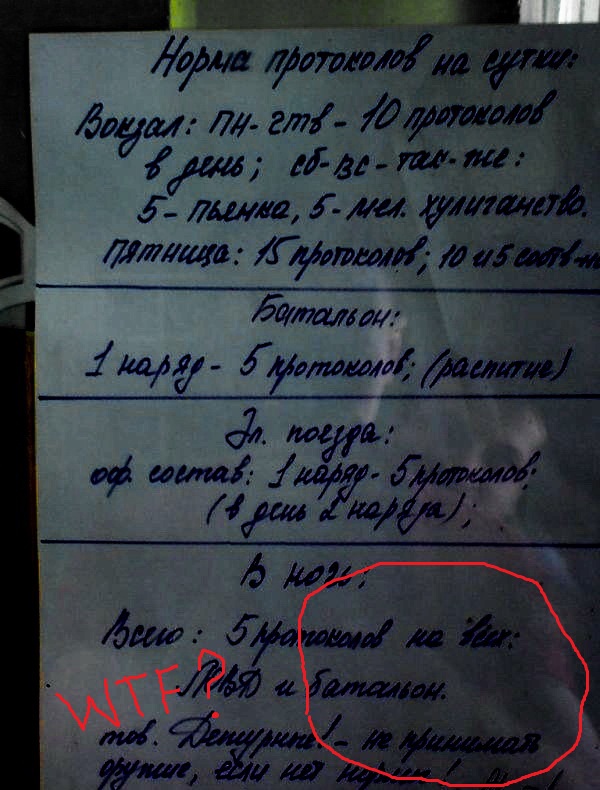 Норма протоколов на сутки:
Вокзал: пн-чтв - 10 протоколов
в день; сб-вс - так-же:
5 - пьянка, 5 - мел. хулиганство.
пятница: 15 протоколов; 10 и 5 соотв-
Батальон:
1 наряд - 5 протоколов; (распитие)
Эл. поезда:
оф. состав: 1 наряд - 5 протоколов;
(в день 2 наряда);
В ночь:
Всего: 5 протоколов на всех:
ПВД и батальон.
WTF?
тов. Дежурные! - не принимать
другие, если нет нормы!